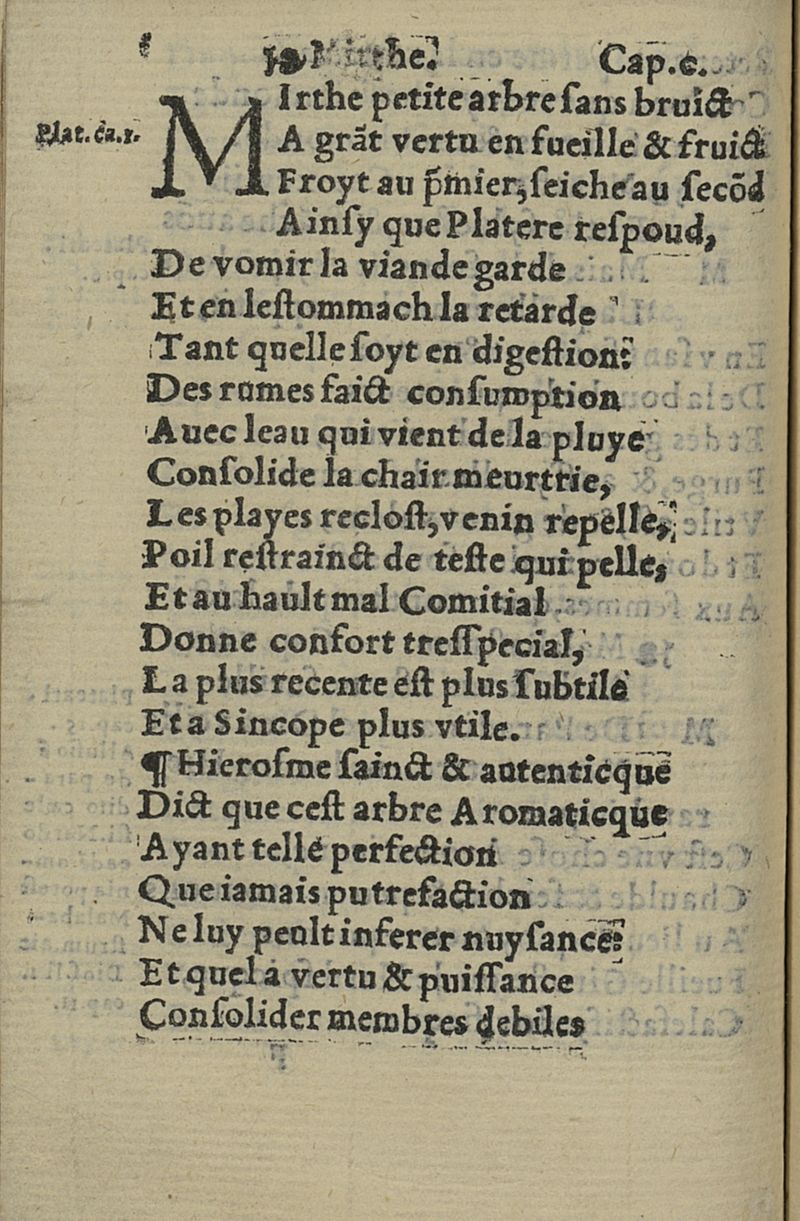 Mirthe. Cap.c.
Plat.ca.1.
MIrthe petite arbre sans bruict
A grãt vertu en fueille & fruict
Froyt au p̃mier, seiche au secõd
Ainsy que Platere respoud,
De vomir la viande garde
Et en lestommach la retarde
Tant quelle soyt en digestion:
Des rumes faict consumption
Auec leau qui vient de la pluye
Consolide la chair meurtrie,
Les playes reclost, venin repelle,
Poil restrainct de teste qui pelle,
Et au hault mal Comitial
Donne confort tresspecial,
La plus recente est plus subtile
Et a Sincope plus vtile.
¶ Hierosme sainct & autenticque
Dict que cest arbre Aromaticque
Ayant telle perfection
Que iamais putrefaction
Ne luy peult inferer nuysance:
Et quel a vertu & puissance
Consolider membres debiles